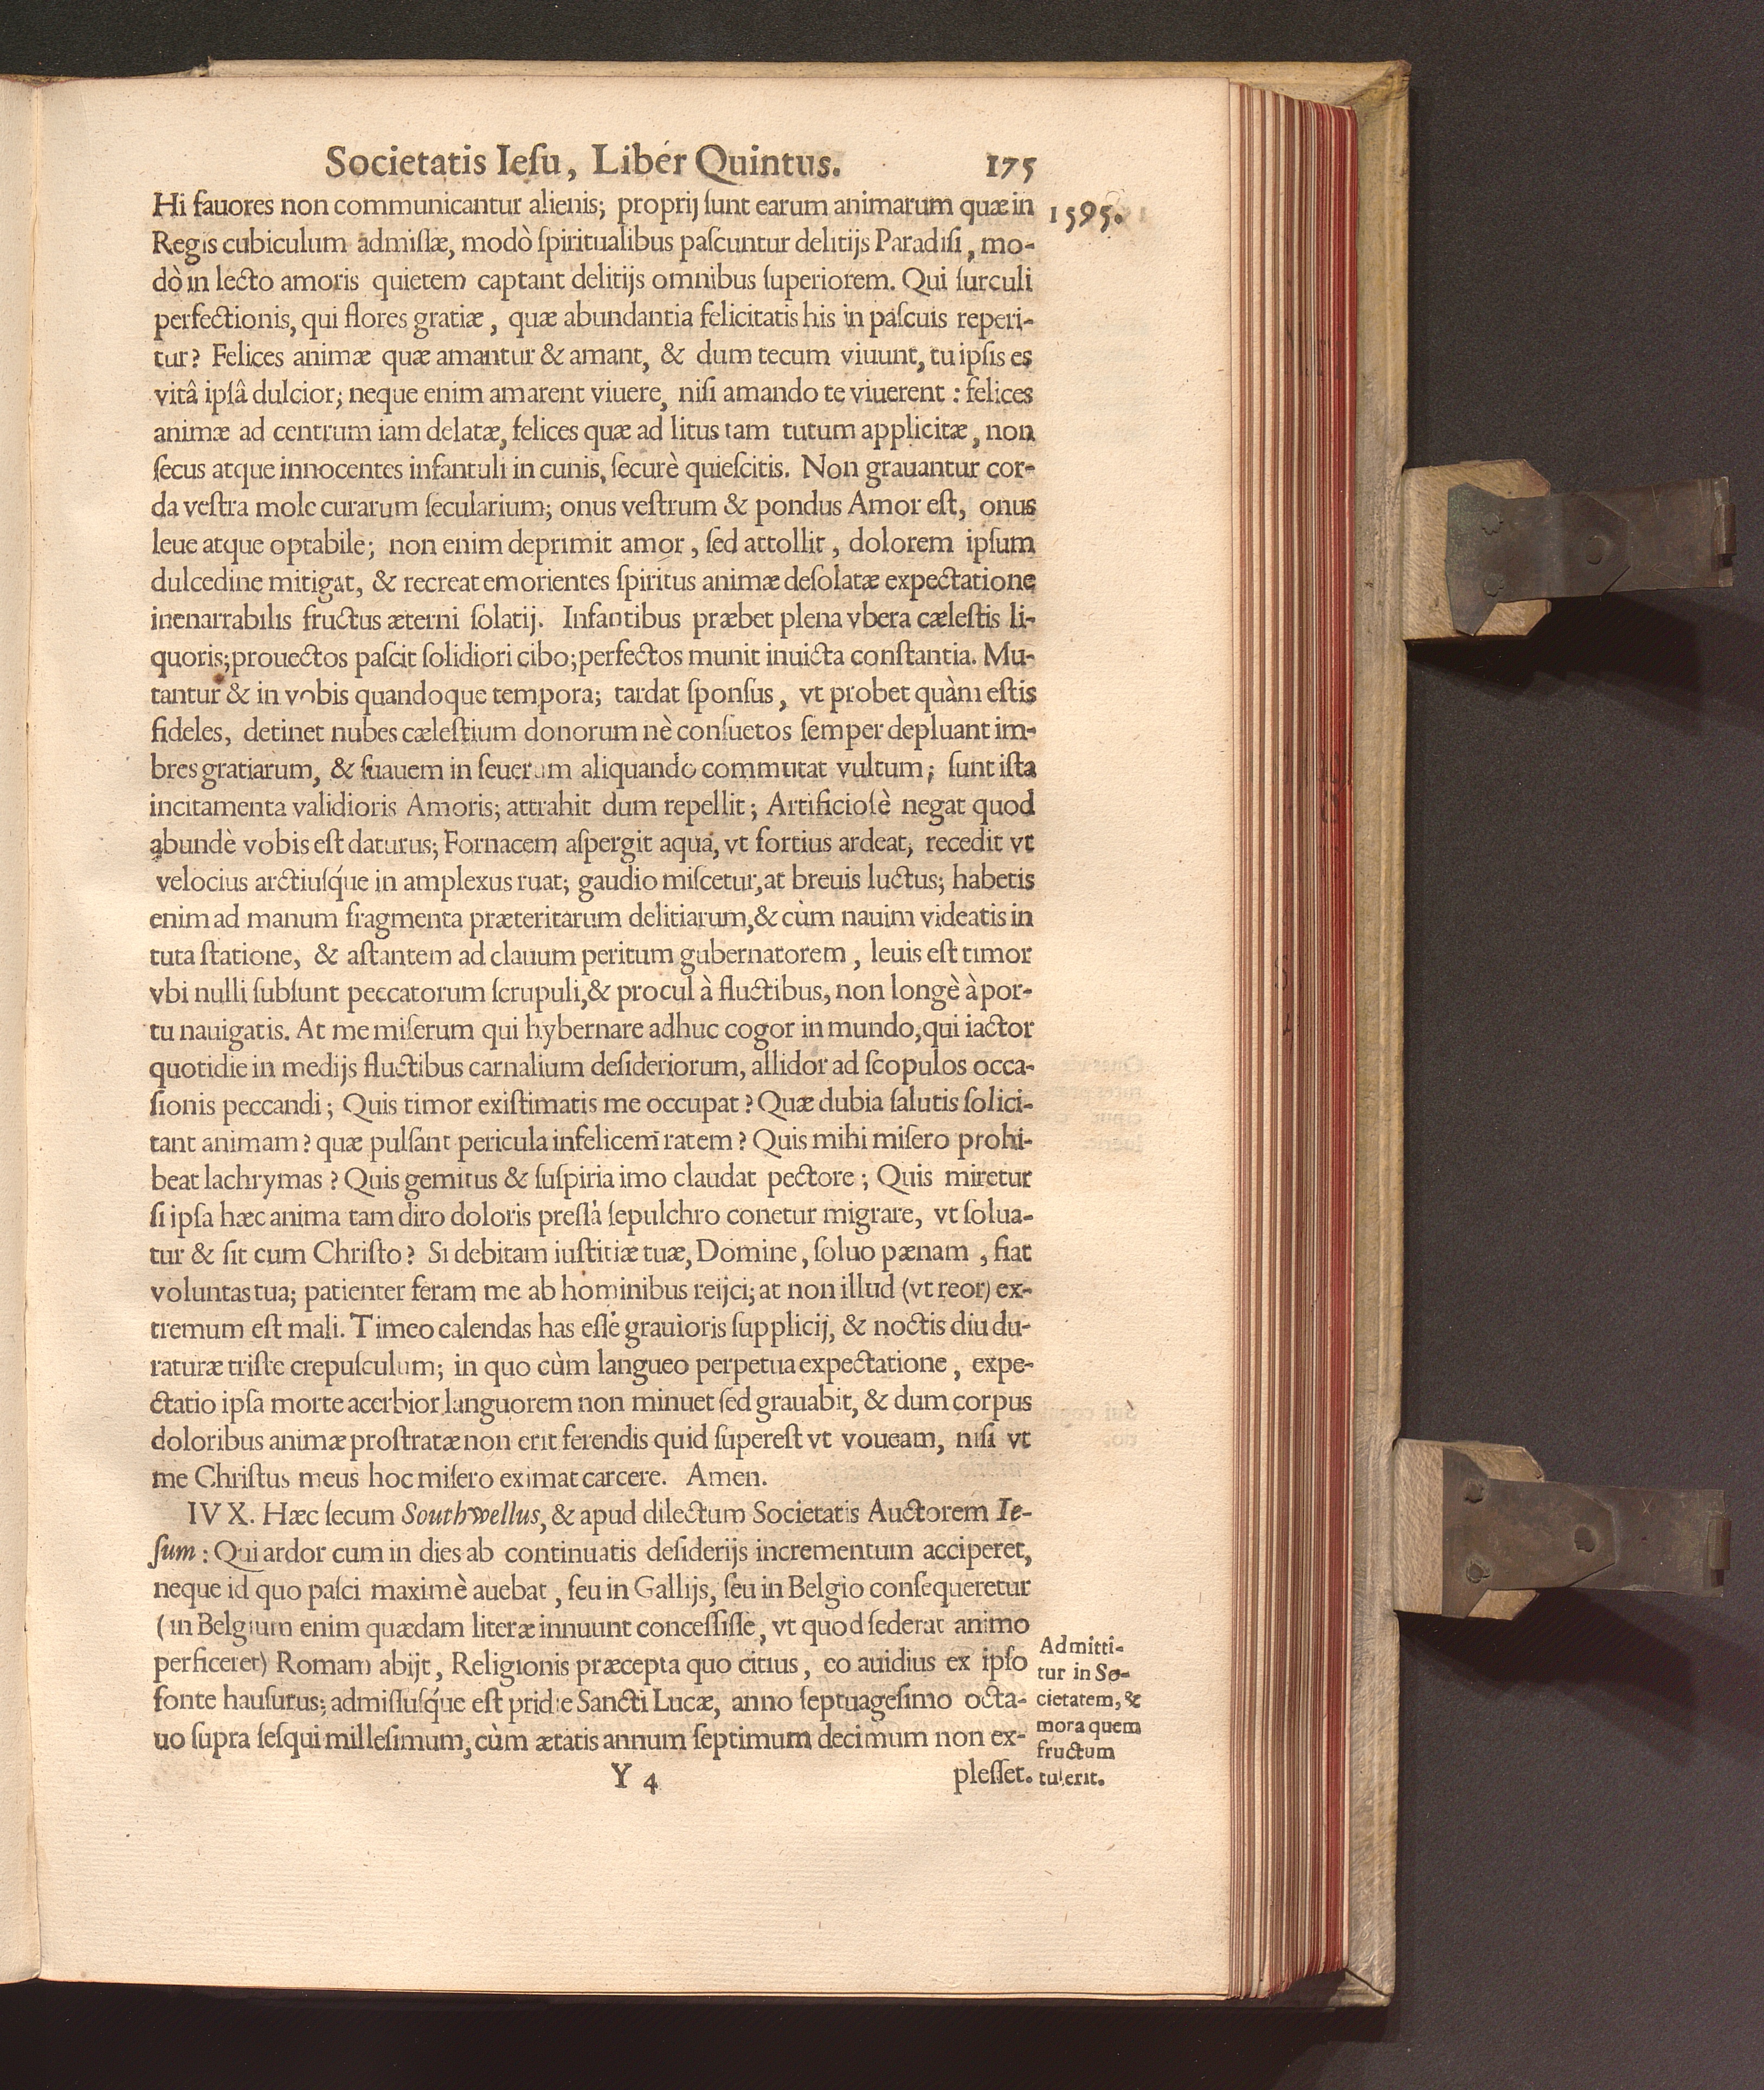 Societatis Iesu, Liber Quintus. 175
1595.
Hi fauores non communicantur alienis; proprij sunt earum animarum quæ in
Regis cubiculum admissæ, modò spiritualibus pascuntur delitijs Paradisi, mo-
dò in lecto amoris quietem captant delitijs omnibus superiorem. Qui surculi
perfectionis, qui flores gratiæ, quæ abundantia felicitatis his in pascuis reperi-
tur? Felices animæ quæ amantur & amant, & dum tecum viuunt, tu ipsis es
vitâ ipsâ dulcior; neque enim amarent viuere, nisi amando te viuerent: felices
animæ ad centrum iam delatæ, felices quæ ad litus tam tutum applicitæ, non
secus atque innocentes infantuli in cunis, securè quiescitis. Non grauantur cor-
da vestra mole curarum secularium; onus vestrum & pondus Amor est, onus
leue atque optabile; non enim deprimit amor, sed attollit, dolorem ipsum
dulcedine mitigat, & recreat emorientes spiritus animæ desolatæ expectatione
inenarrabilis fructus æterni solatij. Infantibus præbet plena vbera cælestis li-
quoris; prouectos pascit solidiori cibo; perfectos munit inuicta constantia. Mu-
tantur & in vobis quandoque tempora; tardat sponsus, vt probet quàm estis
fideles, detinet nubes cælestium donorum nè consuetos semper depluant im-
bres gratiarum, & suauem in seuerum aliquando commutat vultum; sunt ista
incitamenta validioris Amoris; attrahit dum repellit; Artificiosè negat quod
abundè vobis est daturus; Fornacem aspergit aqua, vt fortius ardeat, recedit vt
velocius arctiusq́ue in amplexus ruat; gaudio miscetur, at breuis luctus; habetis
enim ad manum fragmenta præteritarum delitiarum, & cùm nauim videatis in
tuta statione, & astantem ad clauum peritum gubernatorem, leuis est timor
vbi nulli subsunt peccatorum scrupuli, & procul à fluctibus, non longè à por-
tu nauigatis. At me miserum qui hybernare adhuc cogor in mundo, qui iactor
quotidie in medijs fluctibus carnalium desideriorum, allidor ad scopulos occa-
sionis peccandi; Quis timor existimatis me occupat? Quæ dubia salutis solici-
tant animam? quæ pulsant pericula infelicem ratem? Quis mihi misero prohi-
beat lachrymas? Quis gemitus & suspiria imo claudat pectore; Quis miretur
si ipsa hæc anima tam diro doloris pressa sepulchro conetur migrare, vt solua-
tur & sit cum Christo? Si debitam iustitiæ tuæ, Domine, soluo pænam, fiat
voluntas tua; patienter feram me ab hominibus reijci; at non illud (vt reor) ex-
tremum est mali. Timeo calendas has esse grauioris supplicij, & noctis diu du-
raturæ triste crepusculum; in quo cùm langueo perpetua expectatione, expe-
ctatio ipsa morte acerbior languorem non minuet sed grauabit, & dum corpus
doloribus animæ prostratæ non erit ferendis quid superest vt voueam, nisi vt
me Christus meus hoc misero eximat carcere. Amen.
IV X. Hæc secum Southwellus, & apud dilectum Societatis Auctorem Ie-
sum: Qui ardor cum in dies ab continuatis desiderijs incrementum acciperet,
neque id quo pasci maximè auebat, seu in Gallijs, seu in Belgio consequeretur
(in Belgium enim quædam literæ innuunt concessisse, vt quod sederat animo
perficeret) Romam abijt, Religionis præcepta quo citius, eo auidius ex ipso
fonte hausurus; admissusq́ue est pridie Sancti Lucæ, anno septuagesimo octa-
uo supra sesqui millesimum, cùm ætatis annum septimum decimum non ex-
Admitti-
tur in So-
cietatem, &
mora quem
fructum
tulerit.
Y 4 plesset.